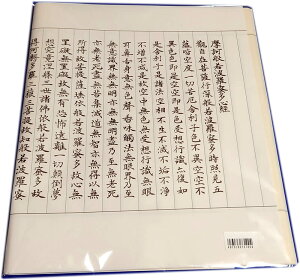 摩訶般若波羅蜜多心經
觀自在菩薩行深般若波羅蜜多時照見五
蘊皆空度一切苦厄舍利子色不異空空不
異色色即是空空即是色受想行識亦復如
是舍利子是諸法空相不生不滅不垢不淨
不增不減是故空中無色無受想行識無眼
耳鼻舌身意無色聲香味觸法無眼界乃至
無意識界無無明亦無無明盡乃至無老死
亦無老死盡無苦集滅道無智亦無得以無
所得故菩提薩埵依般若波羅蜜多故心無
罣礙無罣礙故無有恐怖遠離一切顛倒夢
想究竟涅槃三世諸佛依般若波羅蜜多故
得阿耨多羅三藐三菩提故知般若波羅蜜